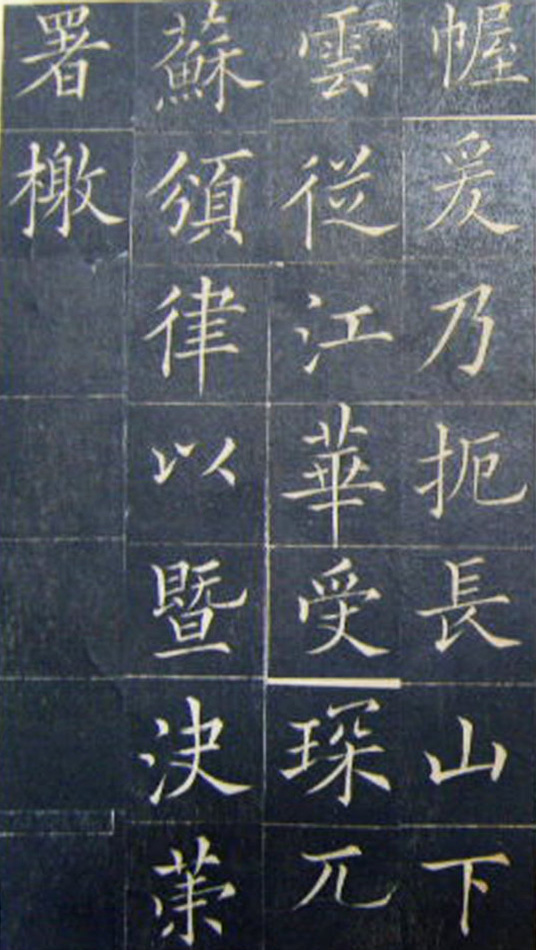 幄爰乃扼長山下
雲從江華受琛兀
蘇須律以暨決
署檄